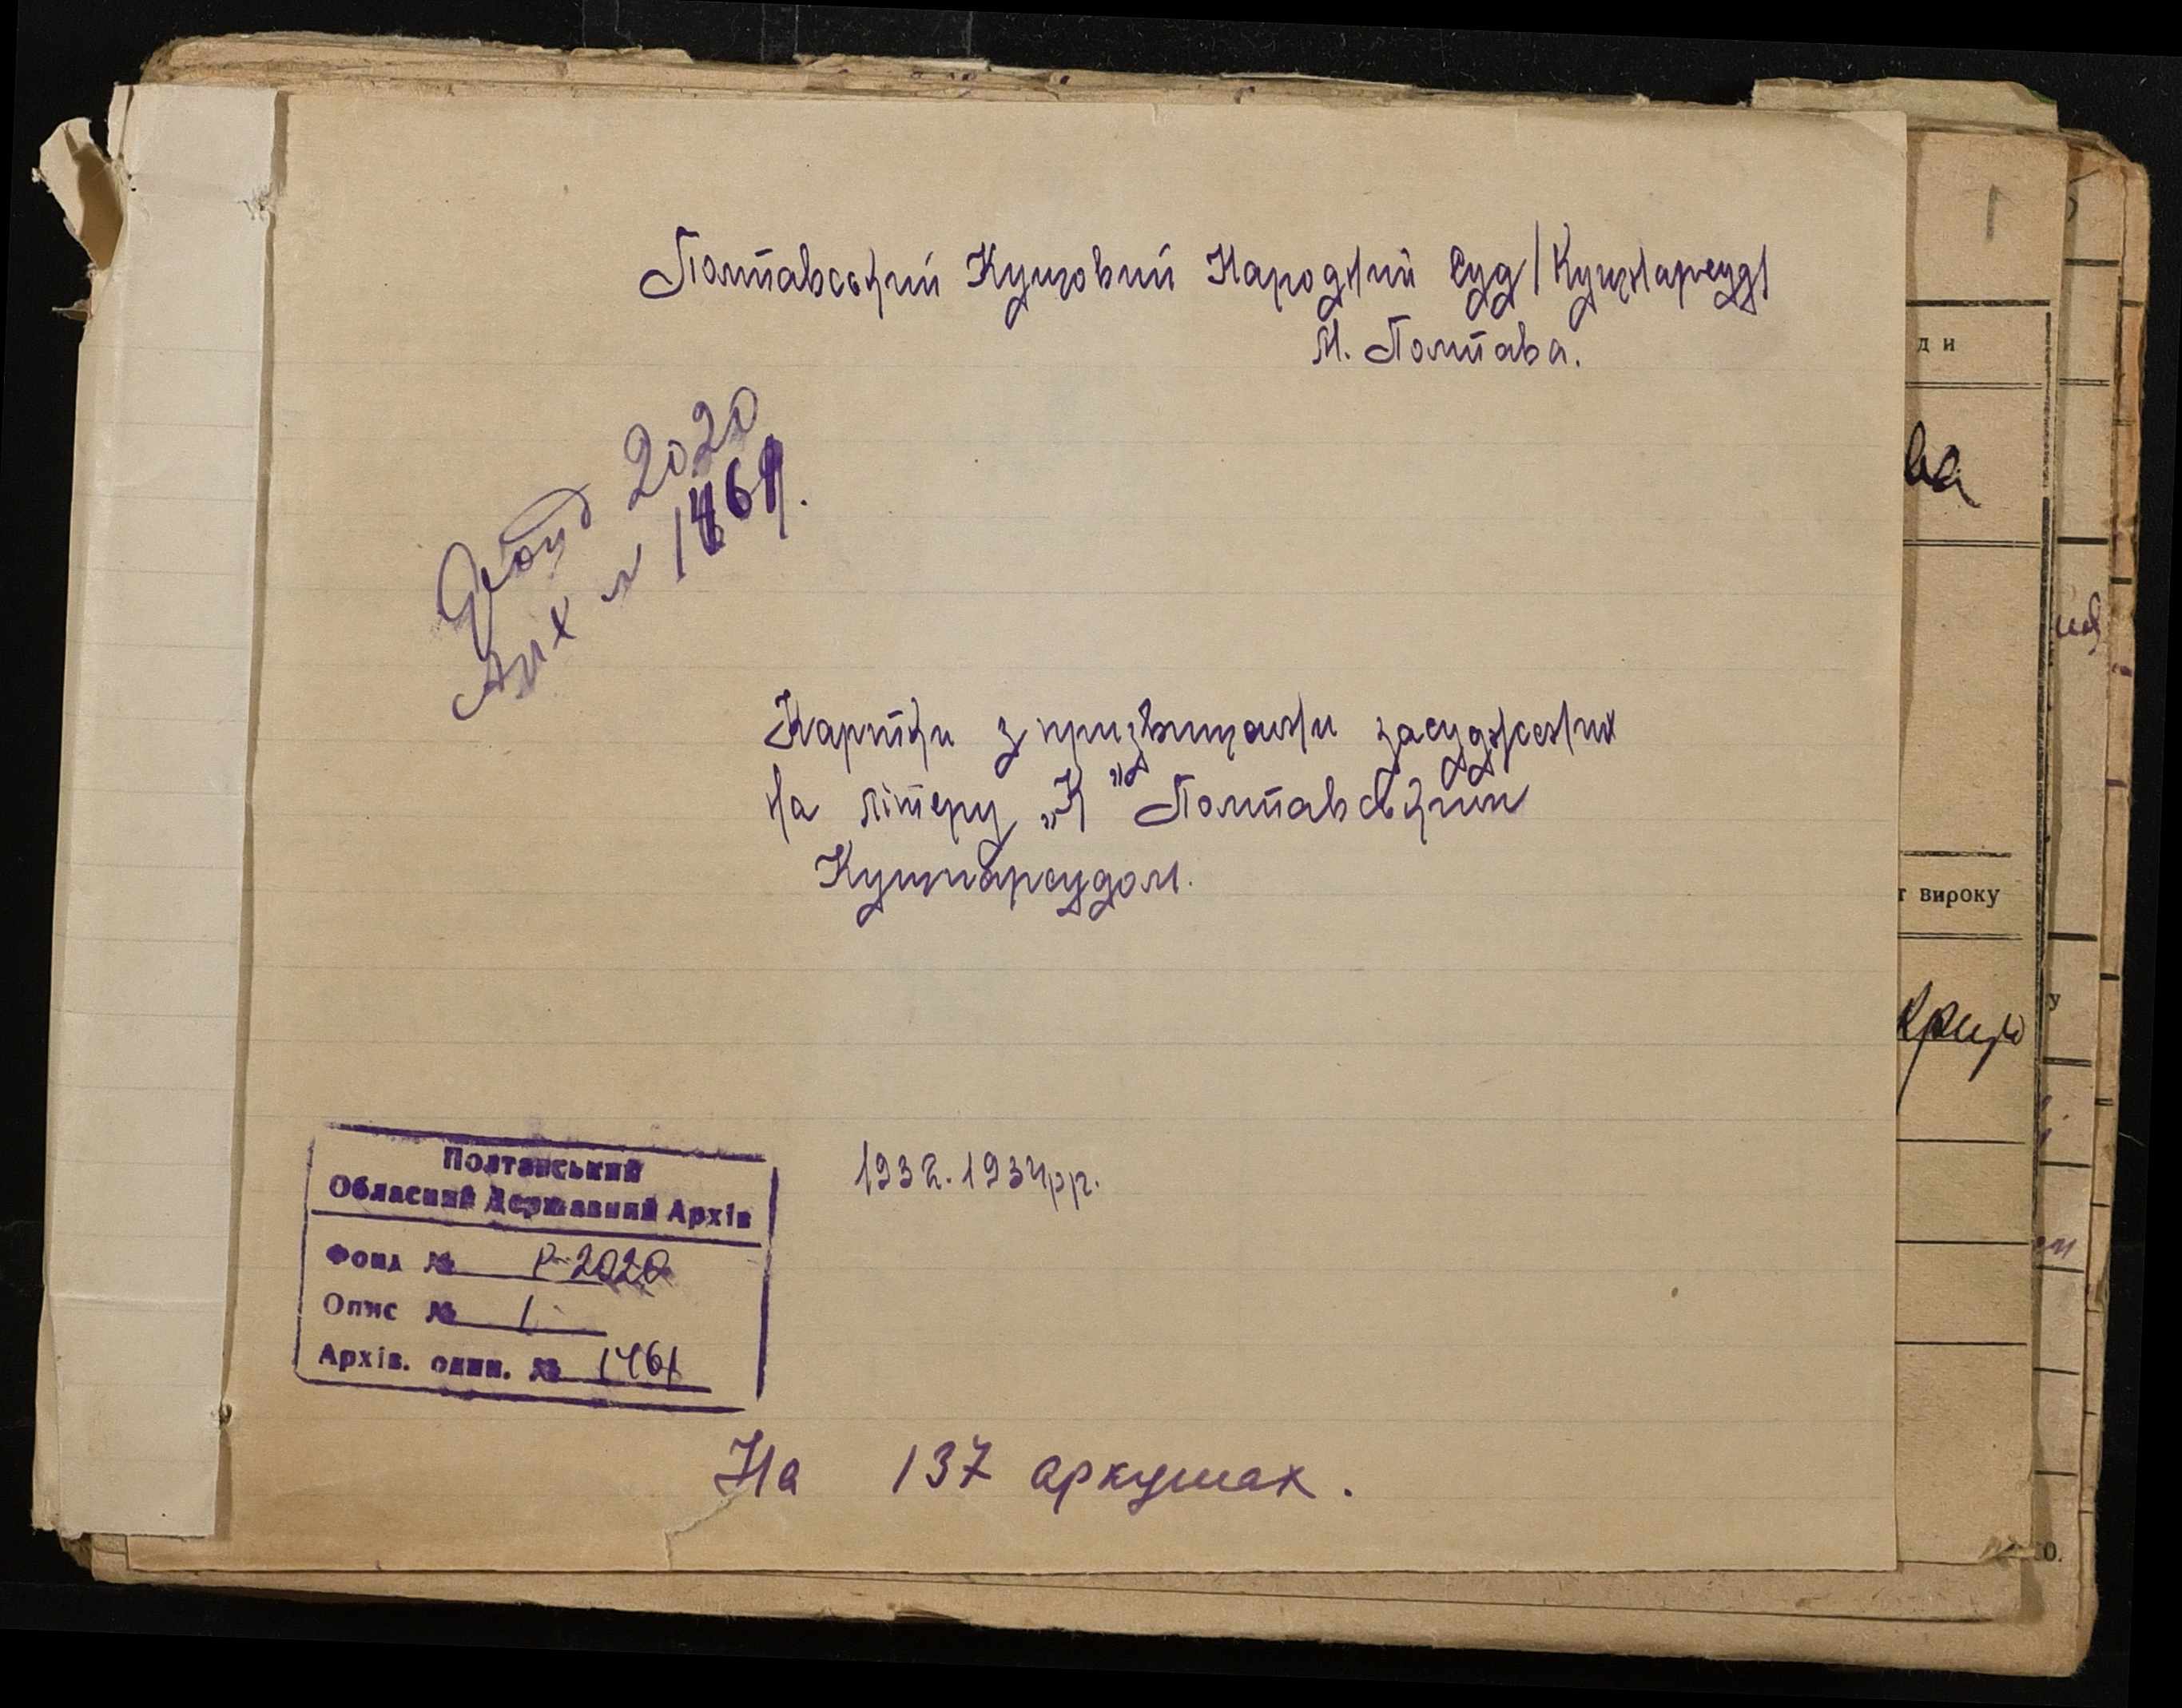 Полтавський Кущовий Народний Суд /Кущнарсуд/
М. Полтава.
Фонд 2020
Арх № 1461.
Картки з призвищами засуджених
на літеру „К" Полтавським
Кущнарсудом.
1932-1934рр.
Полтавський
Обласний Державний Архів
Фонд № Р-2020
Опис № 1
Архів. один. № 1461
На 137 аркушах.
1
ди
ва
т вироку
у
0.